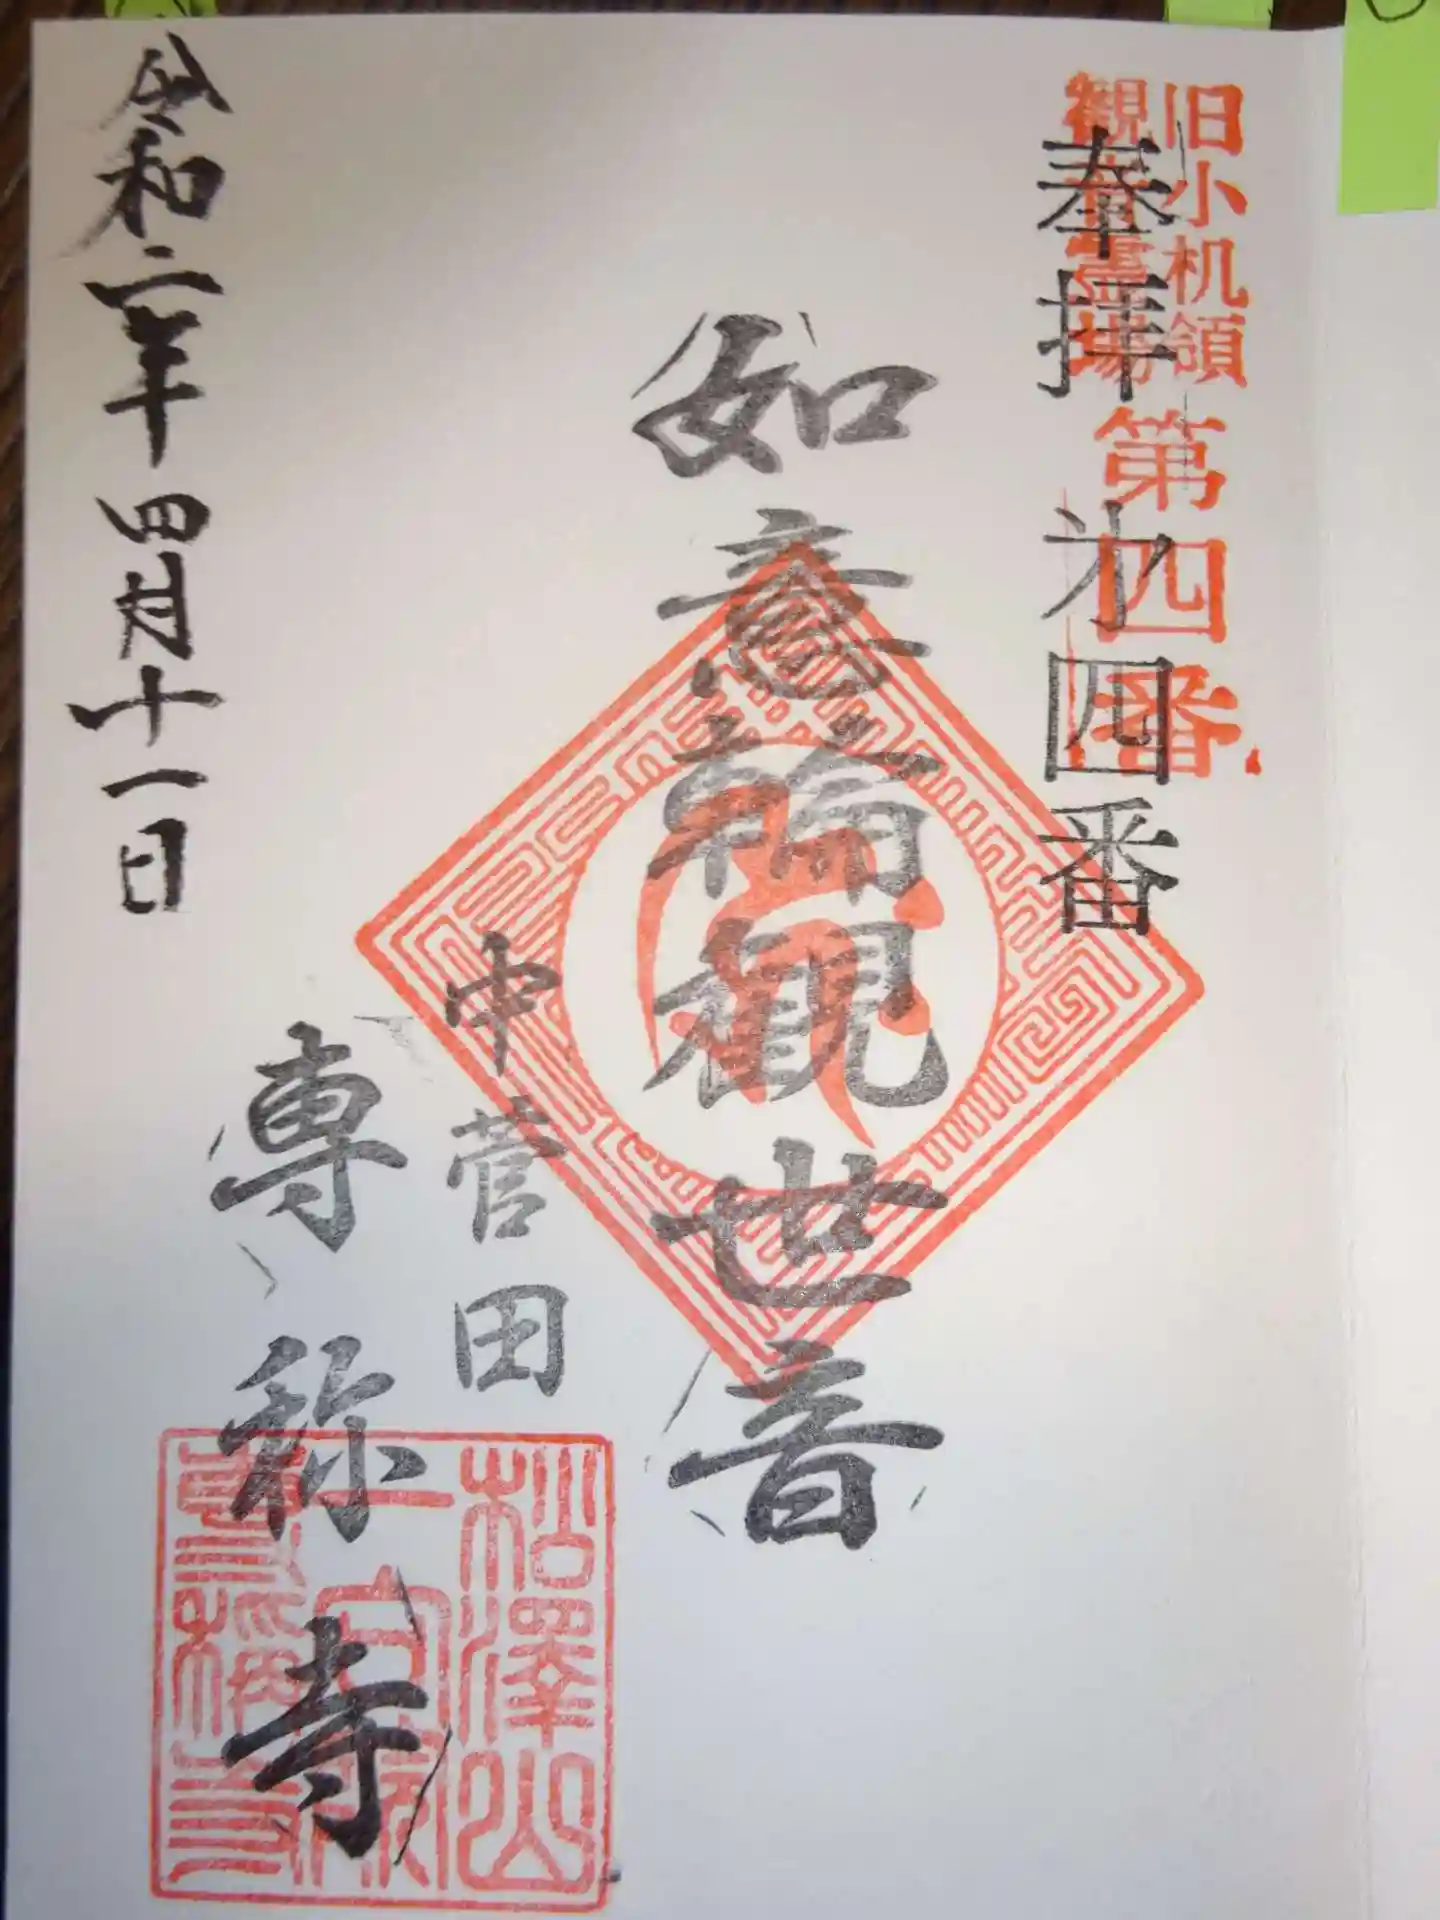 旧小机領
観音霊場
第四番
奉拝
㐧四番
如意輪観世音
中菅田
専称寺
松澤山
専稱寺
令和二年四月十一日